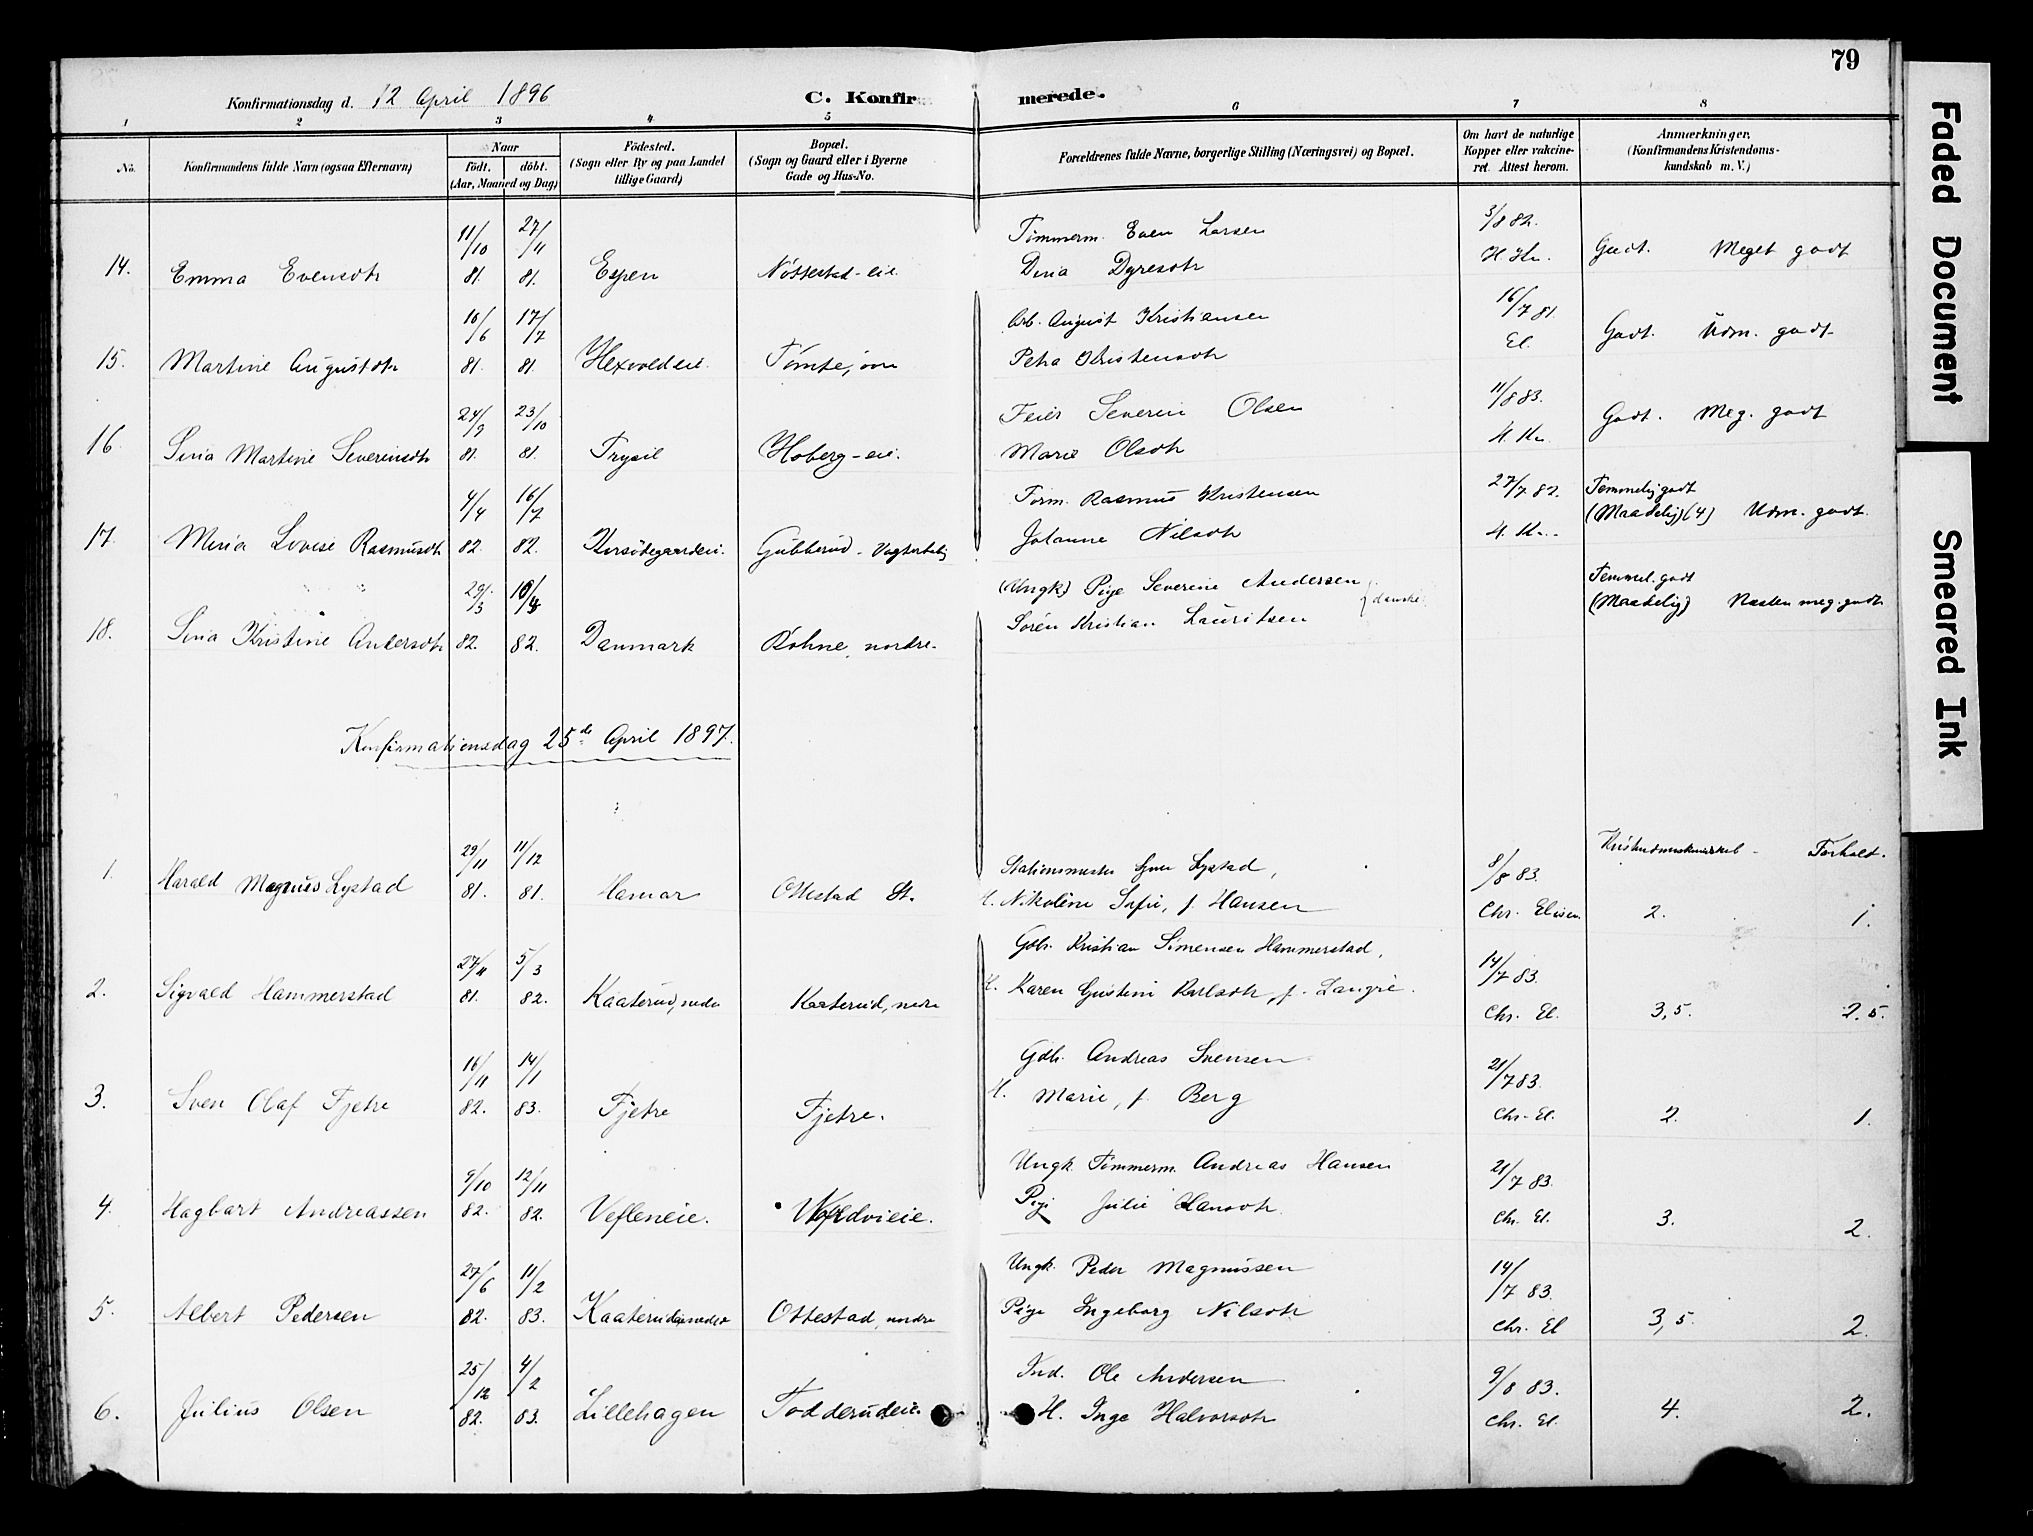 79
Konfirmationsdag d. 12 April 1896
C. Konfirmerede.
1 2 3 4 5 6 7 8
No.
Konfirmandens fulde Navn (ogsaa Efternavn)
Naar
født. døbt.
(Aar, Maaned og Dag)
Fødested.
(Sogn eller By og paa Landet
tillige Gaard)
Bopæl.
(Sogn og Gaard eller i Byerne
Gade og Hus-No.
Forældrenes fulde Navne, borgerlige Stilling (Næringsvei) og Bopæl.
Om havt de naturlige
Kopper eller vakcine-
ret. Attest herom.
Anmærkninger.
(Konfirmandens Kristendoms-
kundskab m. V.)
11/10 27/4 Tømmerm. Even Larsen 3/8 82.
14. Emma Evensdtr 81. 81. Espen Nøttestad-eie Dina Dyresdtr Godt. Meget godt
10/6 17/7 Arb. August Kristiansen 16/7 81.
15. Martine Augustdtr 81. 81. Hexvoldeie. Tømte, Petra Kristensdtr El. Godt. Udm. godt.
24/9 23/10 Feier Severin Olsen 11/8 83.
16 Sina Martine Severinsdtr 81. 81. Trysil Hoberg-eie. Marie Olsdtr Godt. Meg. godt
4/4 16/7 Form. Rasmus Kristensen 27/7 82. Temmelig godt
17. Mina Lovise Rasmusdtr 82. 82. Korsødegaardeie. Gubberud - Vogterbolig Johanne Nilsdtr (Maadelig) (4) Udm. godt.
29/3 (Ungk) Pige Severine Andersen danske Temmel. godt
18. Sina Kristine Andersdtr 82. 82. Danmark Røhne, nordre. Søren Kristian Lauritsen (Maadelig) Næsten meg. godt
Konfirmationsdag 25de April 1897.
Kristendomskundskab - Forhold.
29/11 11/12 Stationsmester Lystad, 8/8 83.
1. Harald Magnus Lystad 81. 81. Hamar Ottestad St. H. Nikoline Sofie, f. Hansen Chr. Elisen 2. 1.
27/11 5/3 Gbr. Kristian Simensen Hammerstad, 14/7 83.
2. Sigvald Hammerstad 81. 82. Kaaterud, nedre Kaaterud, nedre H. Karen Gustine Karlsdtr, f. Chr. El. 3,5. 2.5.
16/11 14/1 Gbr. Andreas Svensen 21/7 83.
3. Sven Olaf Fjetre 82. 83. Fjetre Fjetre. H. Marie, f. Berg Chr. El. 2. 1.
9/10 12/11 Ungk. Tømmerm. Andreas Hansen 21/7 83.
4. Hagbart Andreassen 82. 82. Vefleneie. Pige Julie Hansdtr. Chr. El. 3. 2.
27/6 11/2 Ungk. Peder Magnussen 14/7 83.
5. Albert Pedersen 82. 83. Ottestad, nordre Pige Ingeborg Nilsdtr Chr. El 3,5 2.
25/12 4/2 Ind. Ole Andersen 9/8 83.
6. Julius Olsen 82. 83. Lillehagen Todderudeie. H. Inge Halvorsdtr Chr. El. 4. 2.
Faded Document
Smeared Ink